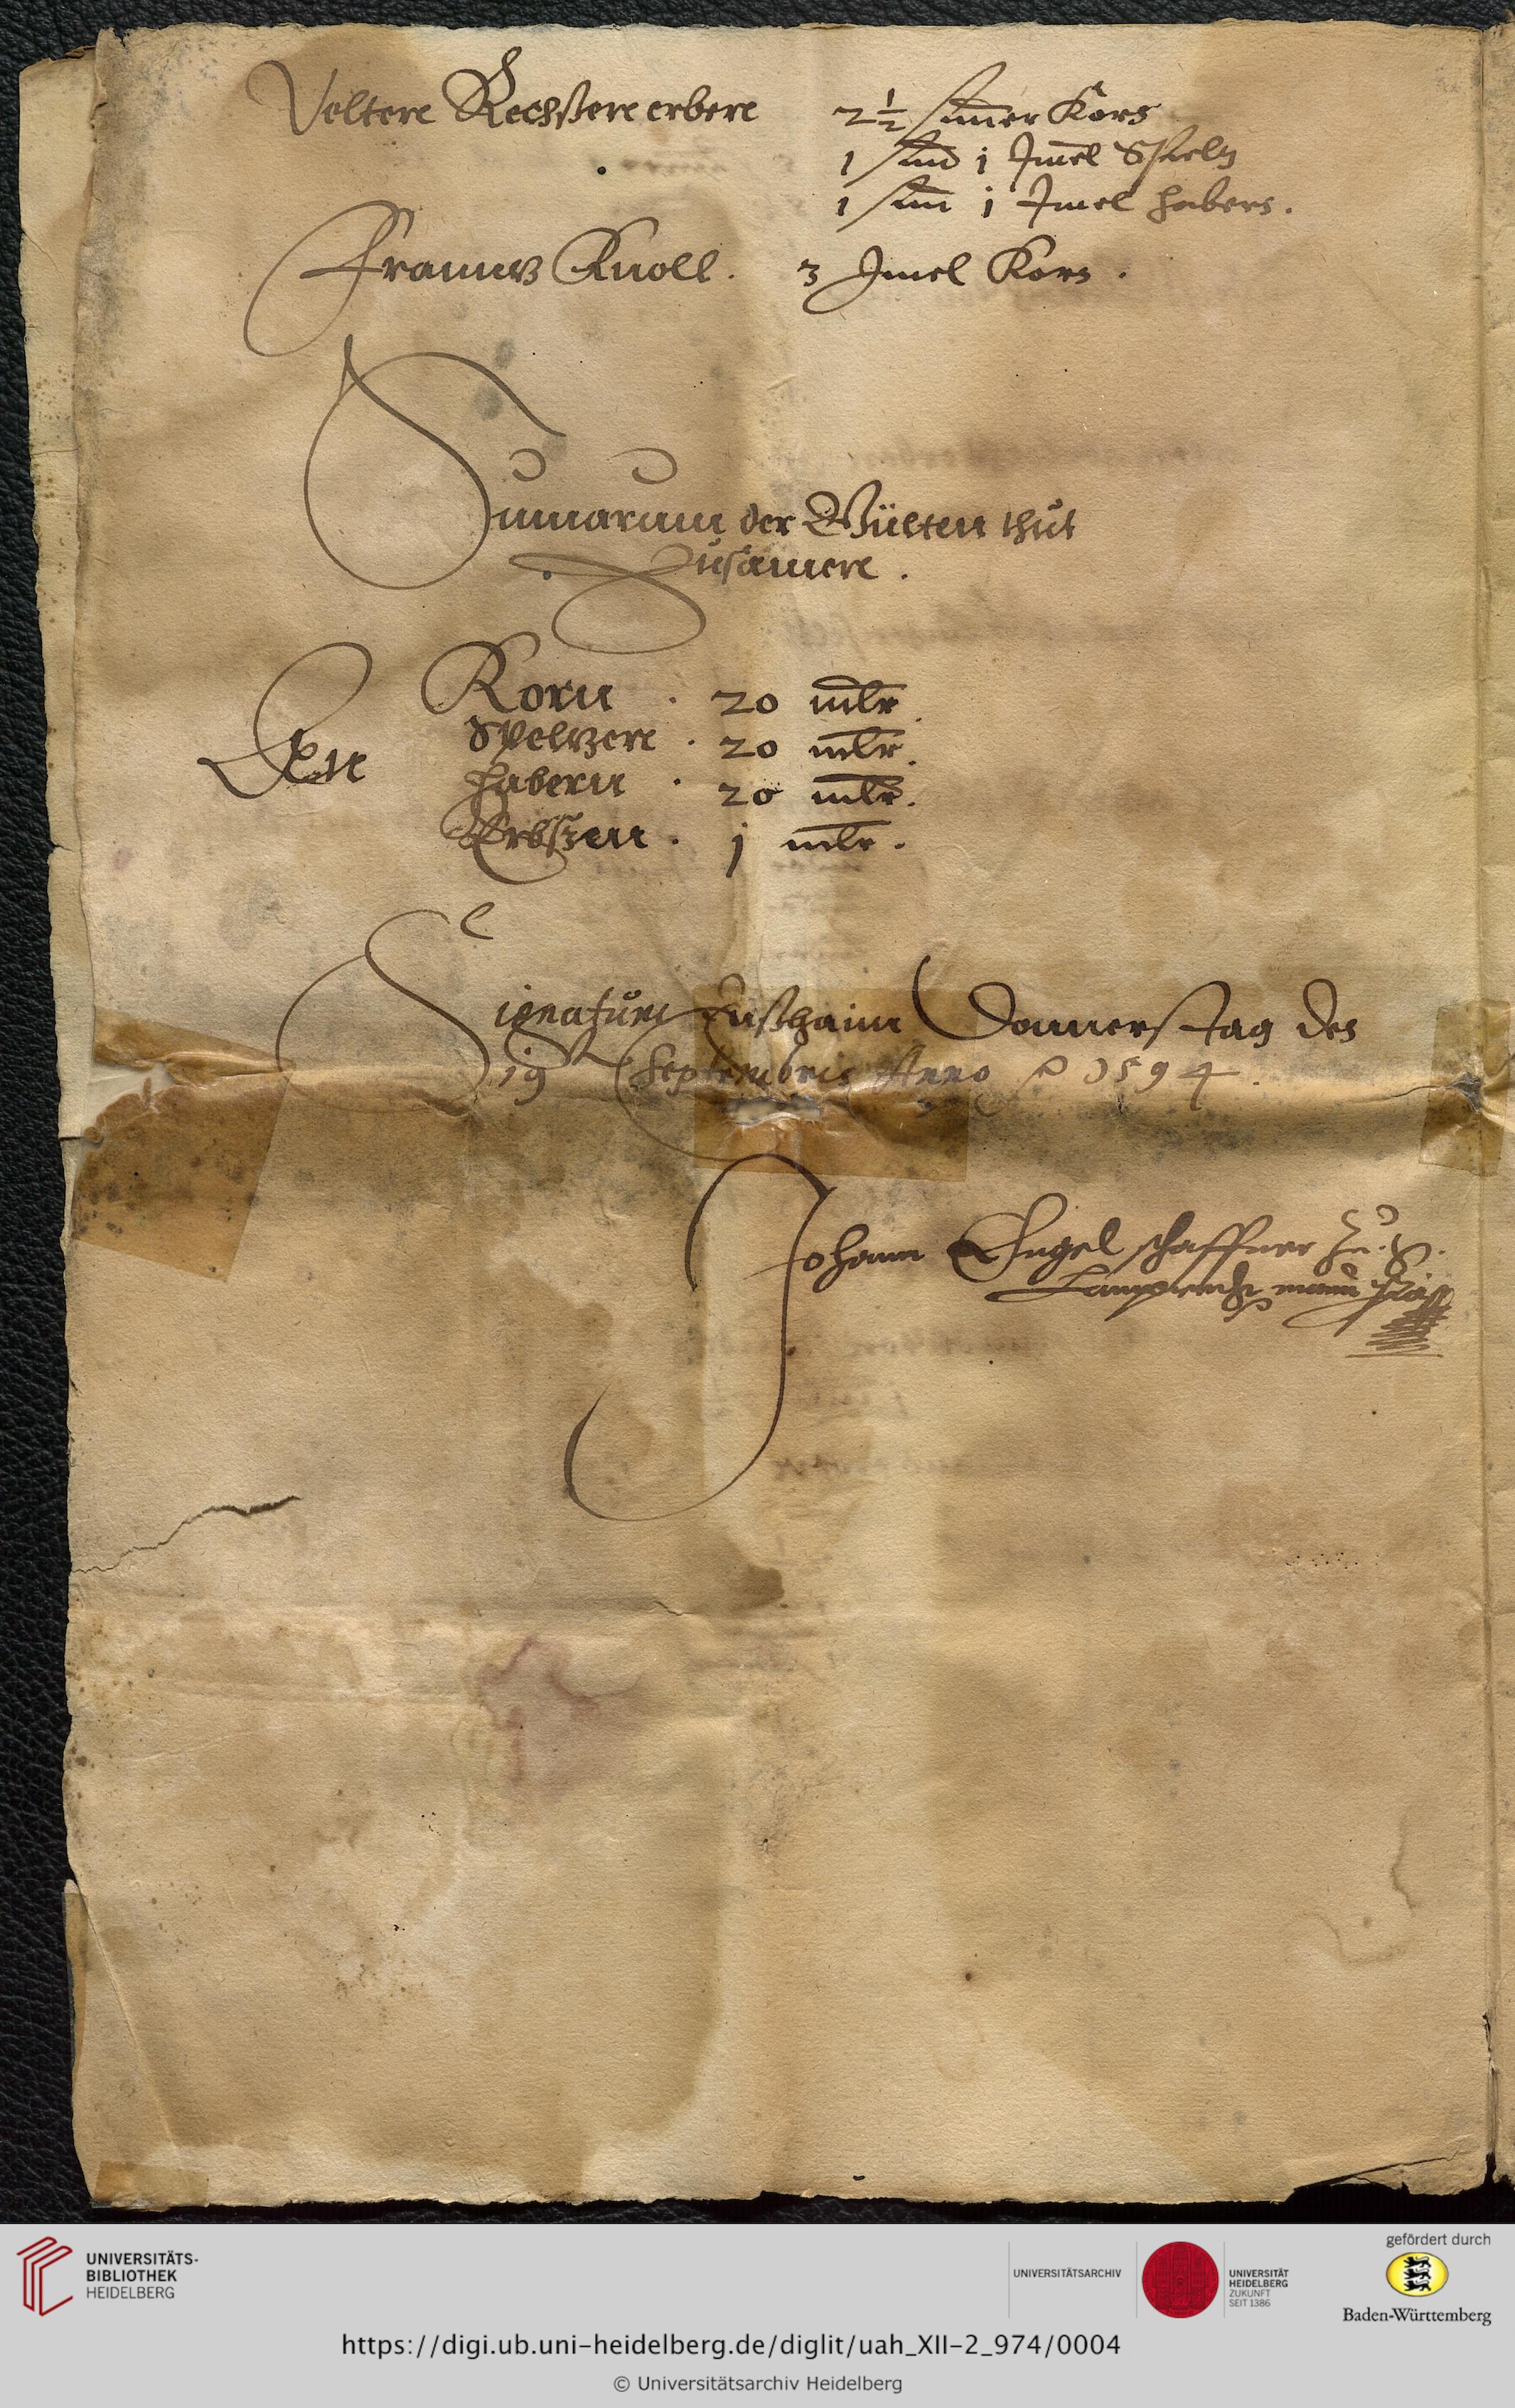 Velten Rechsten erben 2 1/2 sim̄er Korn
1 sim̄ 1 Im̄el Speltz
1 sim̄ 1 Imel habern.
Frantz Knoll. 3 Imel Korn.
Sum̄arum der Gülten thut
Zusamen.
Korn. 20 mlr.
Speltzen. 20 mlr.
An
Habern. 20 mlr.
Erbßen. 1 mlr.
Signatum Donnerstag des
19 Septembris Anno 1594.
Johann Engel schaffner zu S.
Lamprecht
UNIVERSITÄTS-
BIBLIOTHEK
HEIDELBERG
UNIVERSITÄTSARCHIV
UNIVERSITÄT
HEIDELBERG
ZUKUNFT
SEIT 1386
gefördert durch
Baden-Württemberg
https://digi.ub.uni-heidelberg.de/diglit/uah_XII-2_974/0004
© Universitätsarchiv Heidelberg